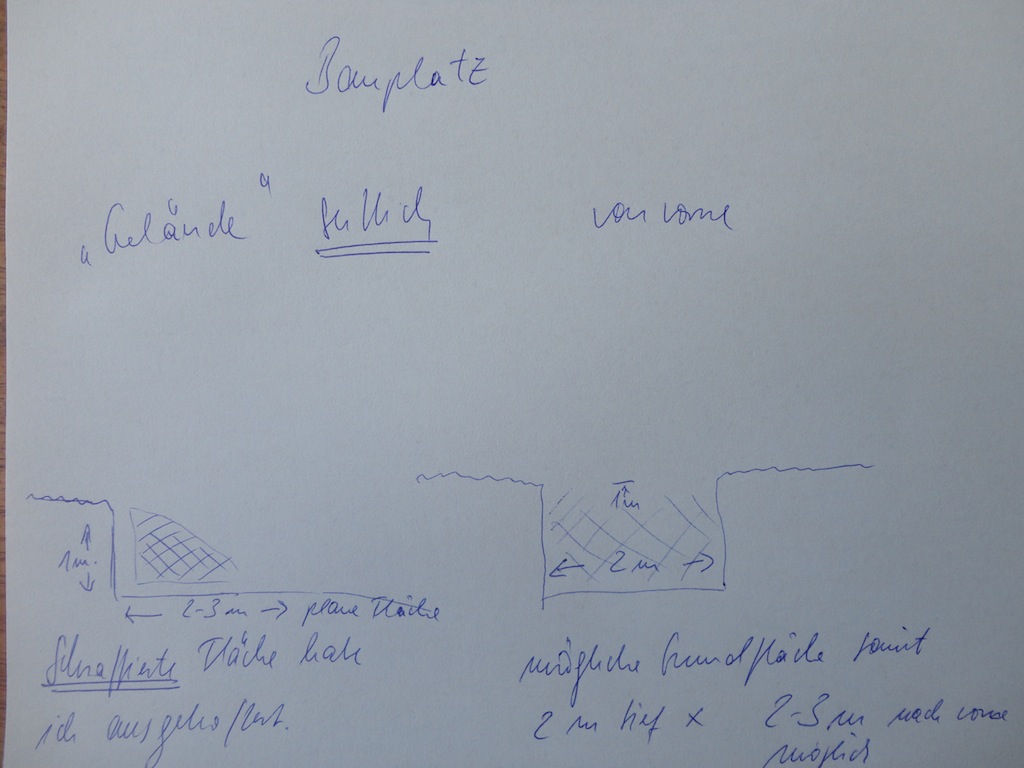 Bauplatz
„Gelände" seitlich von vorne
1m
1m. 2 m
2-3 m plane Fläche
Schraffierte Fläche habe mögliche Grundfläche somit
ich ausgekoffert. 2 m tief x 2-3 m nach vorne
möglich